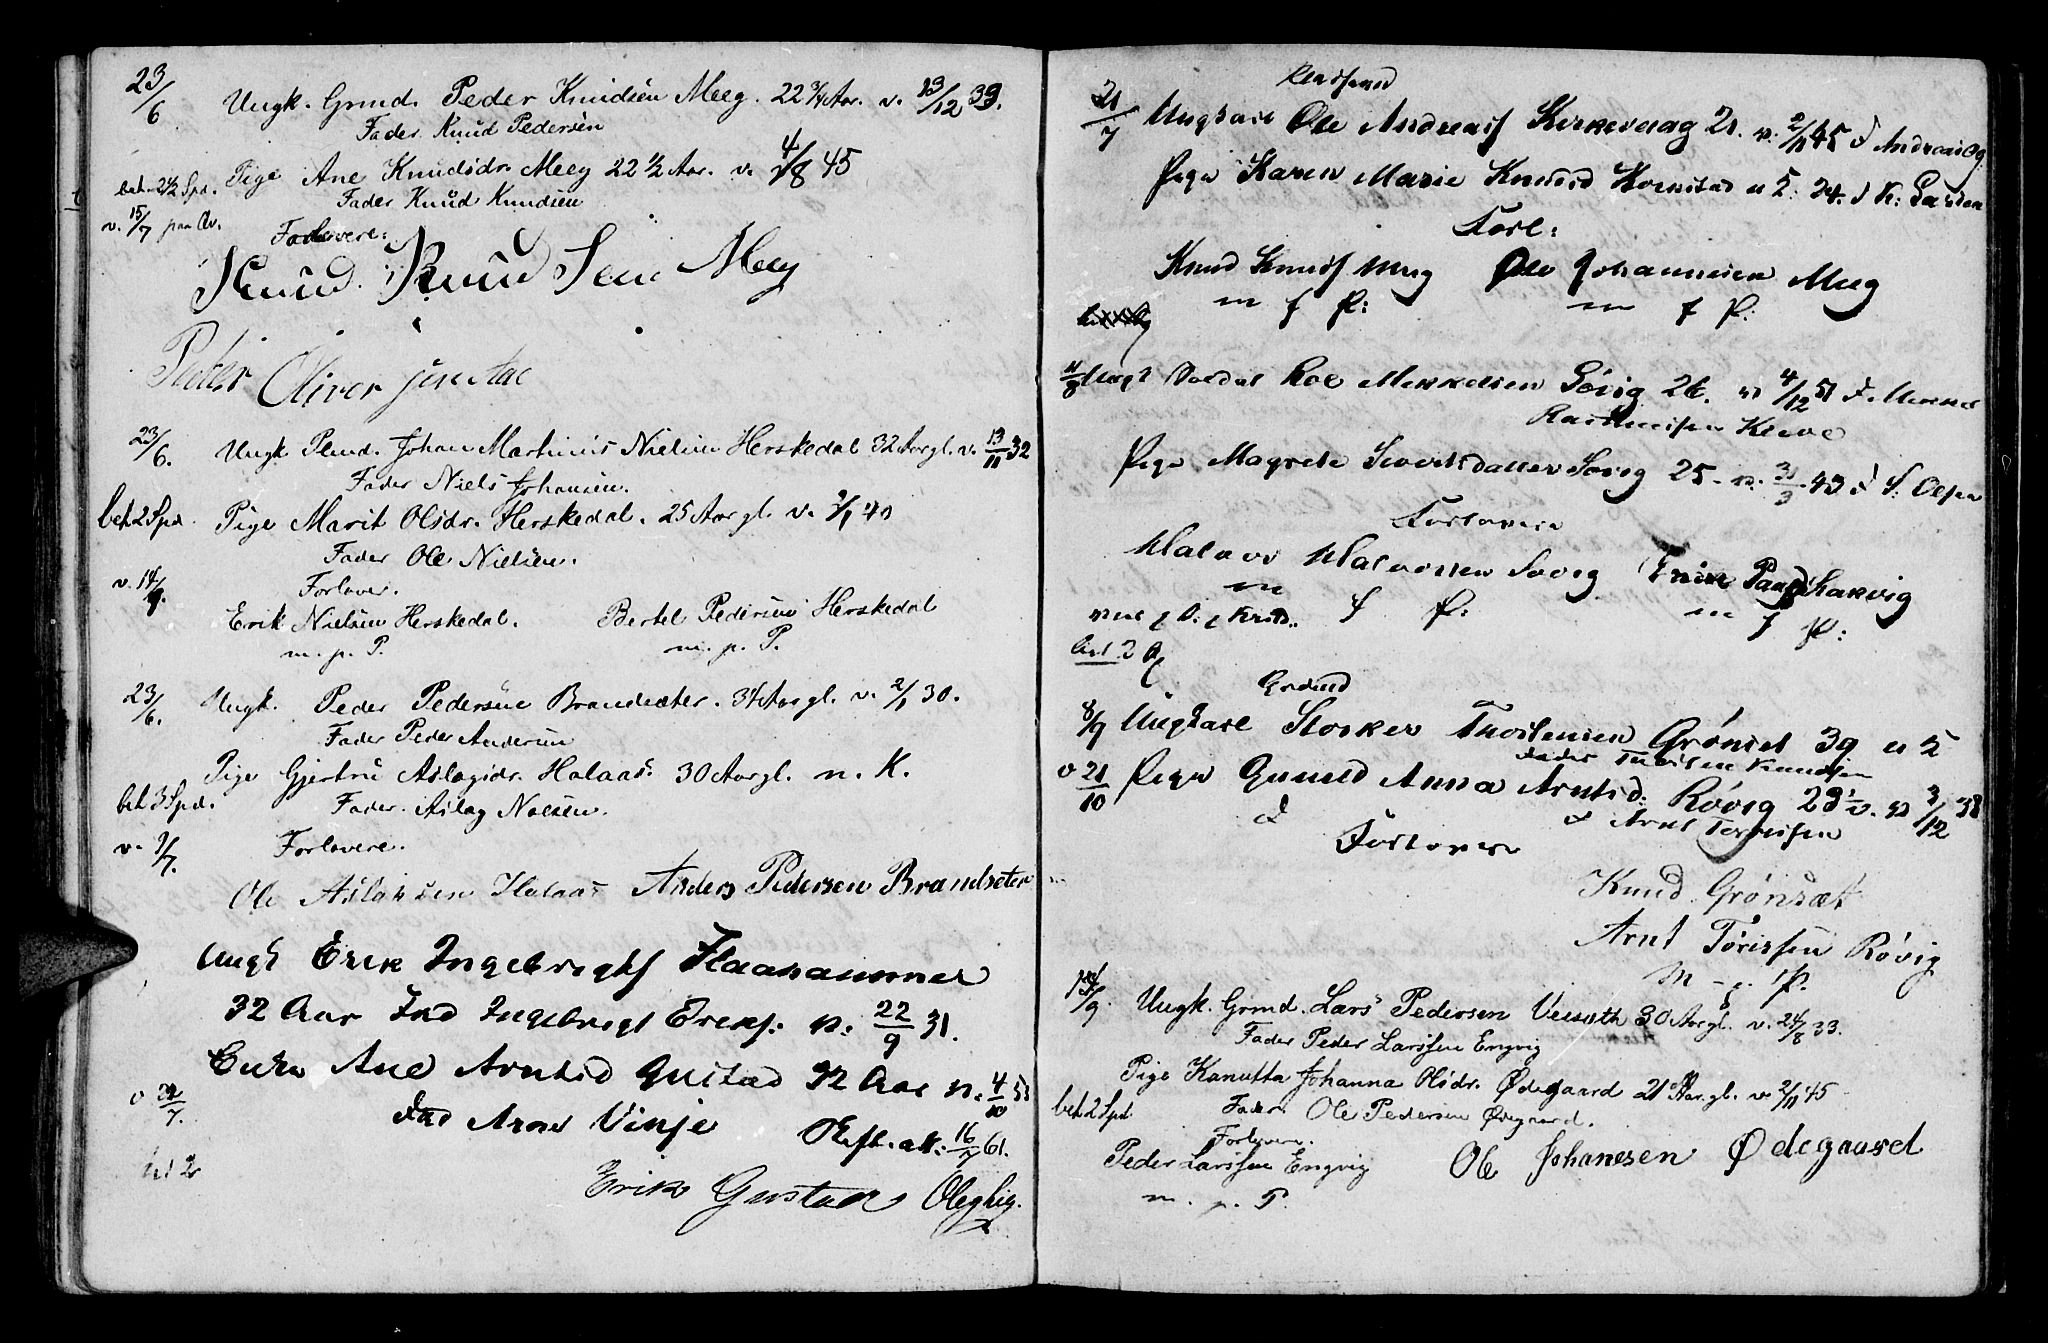 23/6 Ungk. Grmd. Peder Knudsen Meeg. 22 3/4 Aar. v. 13/12 39.
Fader. Knud Pedersen
Pige Ane Knudsdr. Meeg 22 1/2 Aar. v. 4/8 45
bet. 2 1/2 Spd. Fader Knud Knudsen
v. 15/7
Forlovere:
Knud Knud Sen Meeg
Peter Oliver
23/6. Ungk. Johan Martinus Nielsen Herskedal 32 Aar gl. v. 13/11 32
Fader Niels Johansen.
bet 2 Spd. Pige Marit Olsdr. Herskedal. 25 Aar gl. v. 40
Fader Ole Nielsen.
v. 14/9. Forlover.
Erik Nielsen Herskedal. Bertel Pedersen Herskedal
m. p. P. m. p. P.
23/6. Ungk. Peder Pedersen Brandsæter. 34 Aar gl. v. 2/1 30.
Fader Peder Andersen
Pige Gjertru Aslagsdr. Halaas. 30 Aar gl. n. K.
bet 3 Spd. Fader. Aslag Nielsen.
v. 9/7. Forlovere.
Ole Aslaksen Halaas Anders Pedersen Brandseter
Ungk Erik Ingebrigts Flaahammer
32 Aar Fad Ingebrigt Ereks: v: 22/9 31.
Enke Ane Arntsd Gustad 32 Aar v. 4/10
Fad Arne Vinje
Skift. att: 16/7 61.
bet 2
Erik Gustad
21/7 Ungkarl Ole Andreas Kirkevaag 21. v. 2/11 45 F Andreas
Pige Karen Marie Knudsd 24. F K: Larsen
Forl:
Knud Knuds Meeg Ole Johannesen Meeg
m f P: m f P:
11/8 Ungk Roe Mikkelsen Søvig 26. v 4/12 51 F.
Rasmussen
Pige Magrete Sivertsdatter Søvig 25 - v. 31/3 43 F S: Olsen
Forlovere
Halvor Halvorsen Søvig
m f P: m f P:
bet 2
Grdmd
8/9 Ungkarl Storker Thostensen Grønset 39 u 5
Fader Thorsten Knudsen
v 21/10 Pige Gunild Anna Arntsd: Røvig v. 3/12 38
F Arnt Torrissen
Forlovere
Knud Grønsæt
Arnt Tørissen Røvig
M - p. P.
/9. Ungk. Grmd. Lars Pedersen 30 Aar gl. v. 24/8 33.
Fader Peder Larssen Engvig
Pige Kanutta Johanna Olsdr. Ødegaard 21 Aar. gl. v. 2/11 45
bet 2 Spd Fader. Ole Pedersen Ødegaard.
Forlovere.
Peder Larssen Engvig Ole Johanesen Ødegaard
m. p. P.